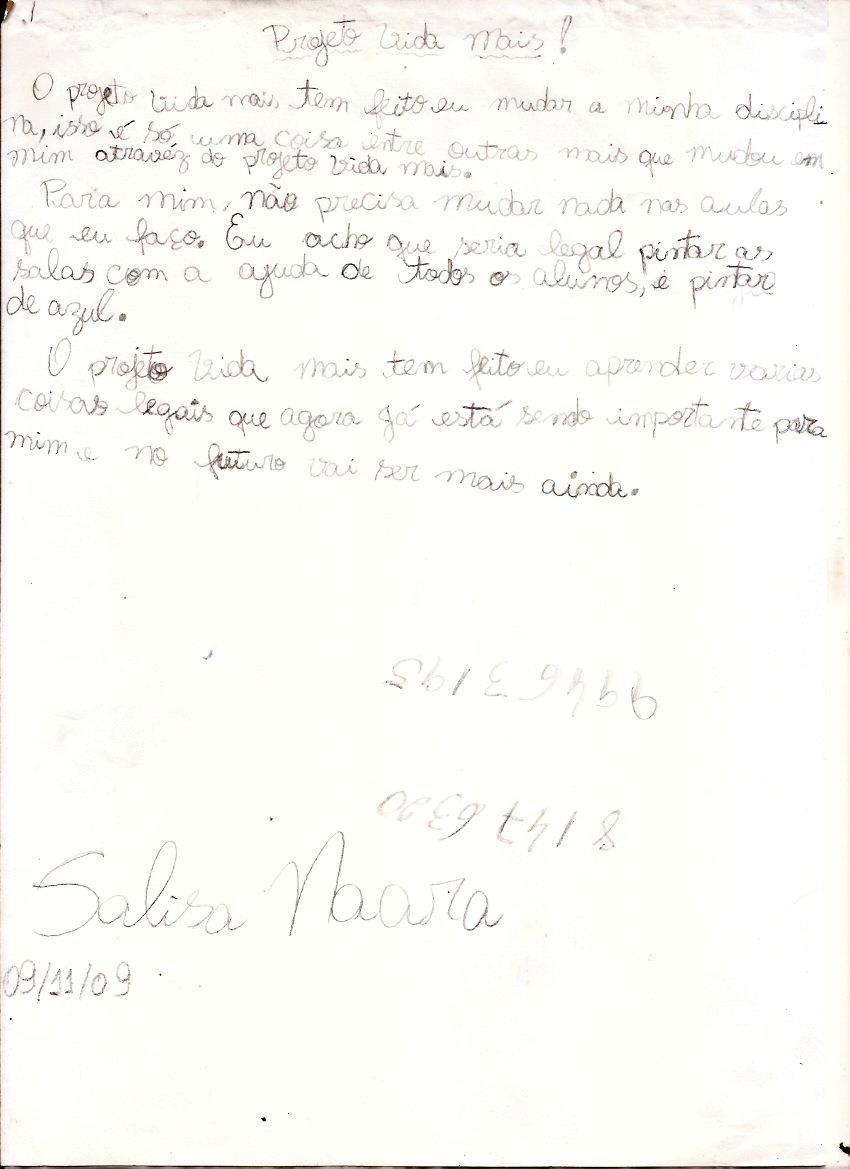 Projeto Vida Mais!
O projeto Vida mais tem feito eu mudar a minha discipli
na, isso é só uma coisa entre outras mais que mudou em
mim atravéz do projeto Vida mais.
Para mim, não precisa mudar nada nas aulas
que eu faço. Eu acho que seria legal pintar as
salas com a ajuda de todos os alunos, e pintar
de azul.
O projeto Vida mais tem feito eu aprender varias
coisas legais que agora já está sendo importante para
mim e no futuro vai ser mais ainda.
9946 3195
8147 6320
Salisa Naara
09/11/09